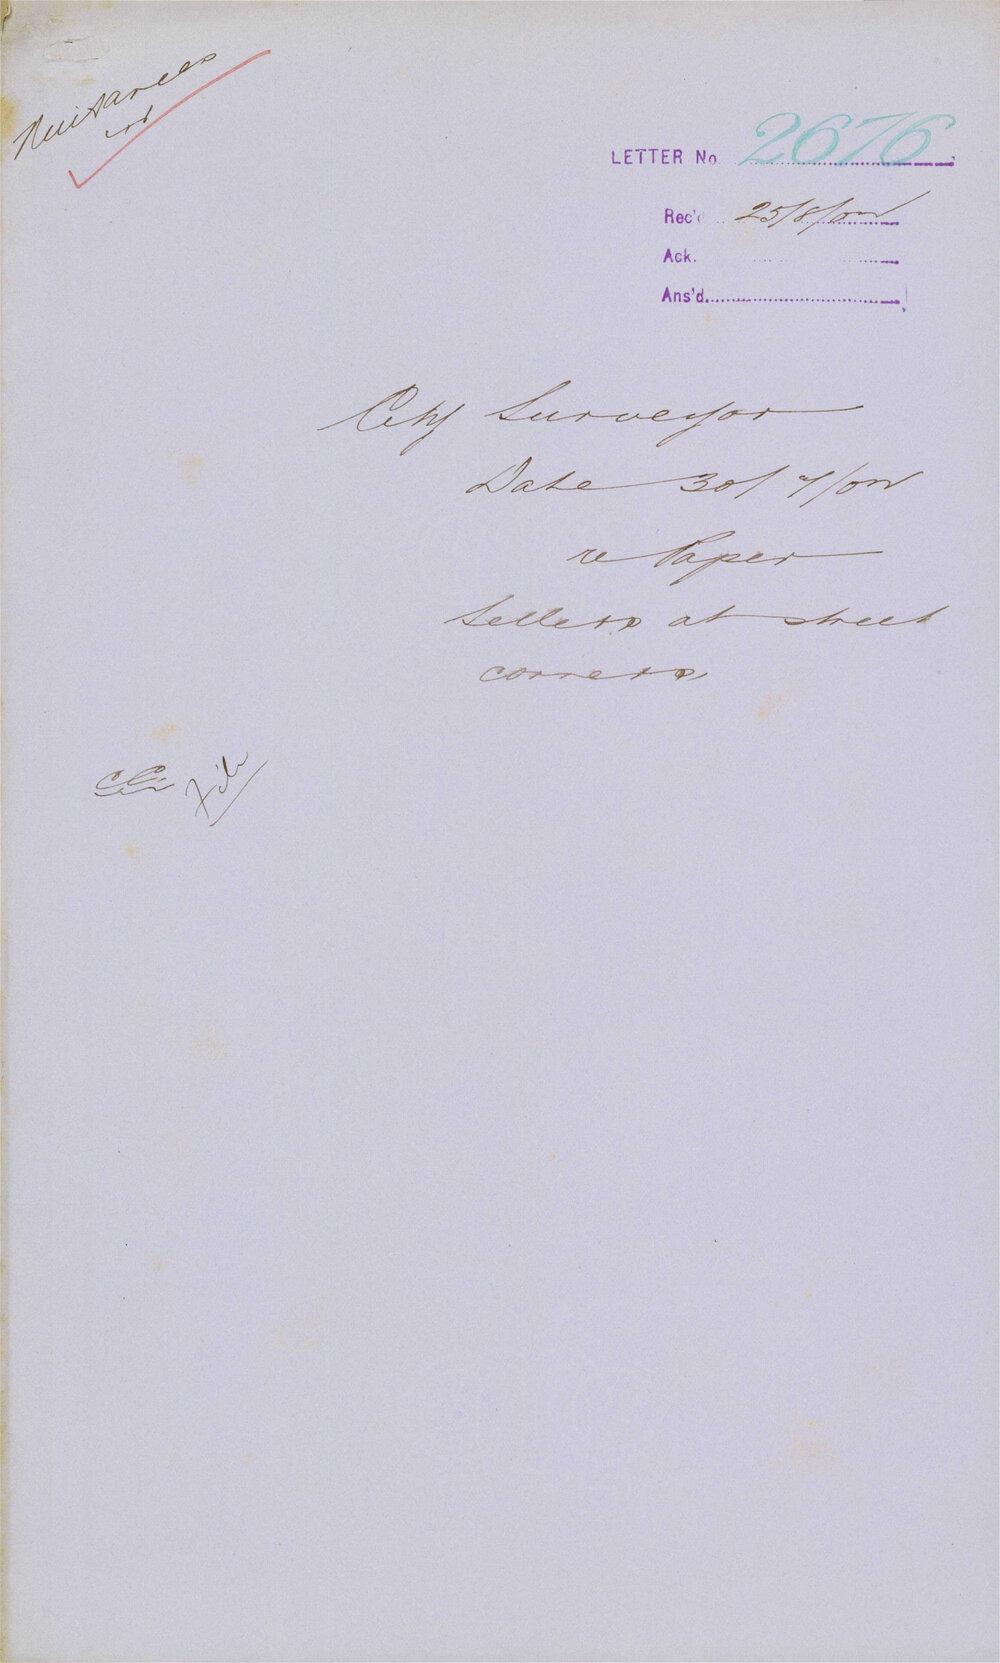 Nuisances
LETTER No 2676
Rec'd 25/8/02
Ack.
Ans'd
City Surveyor
Date 30/7/02
re Paper
Sellers at street
corners
File